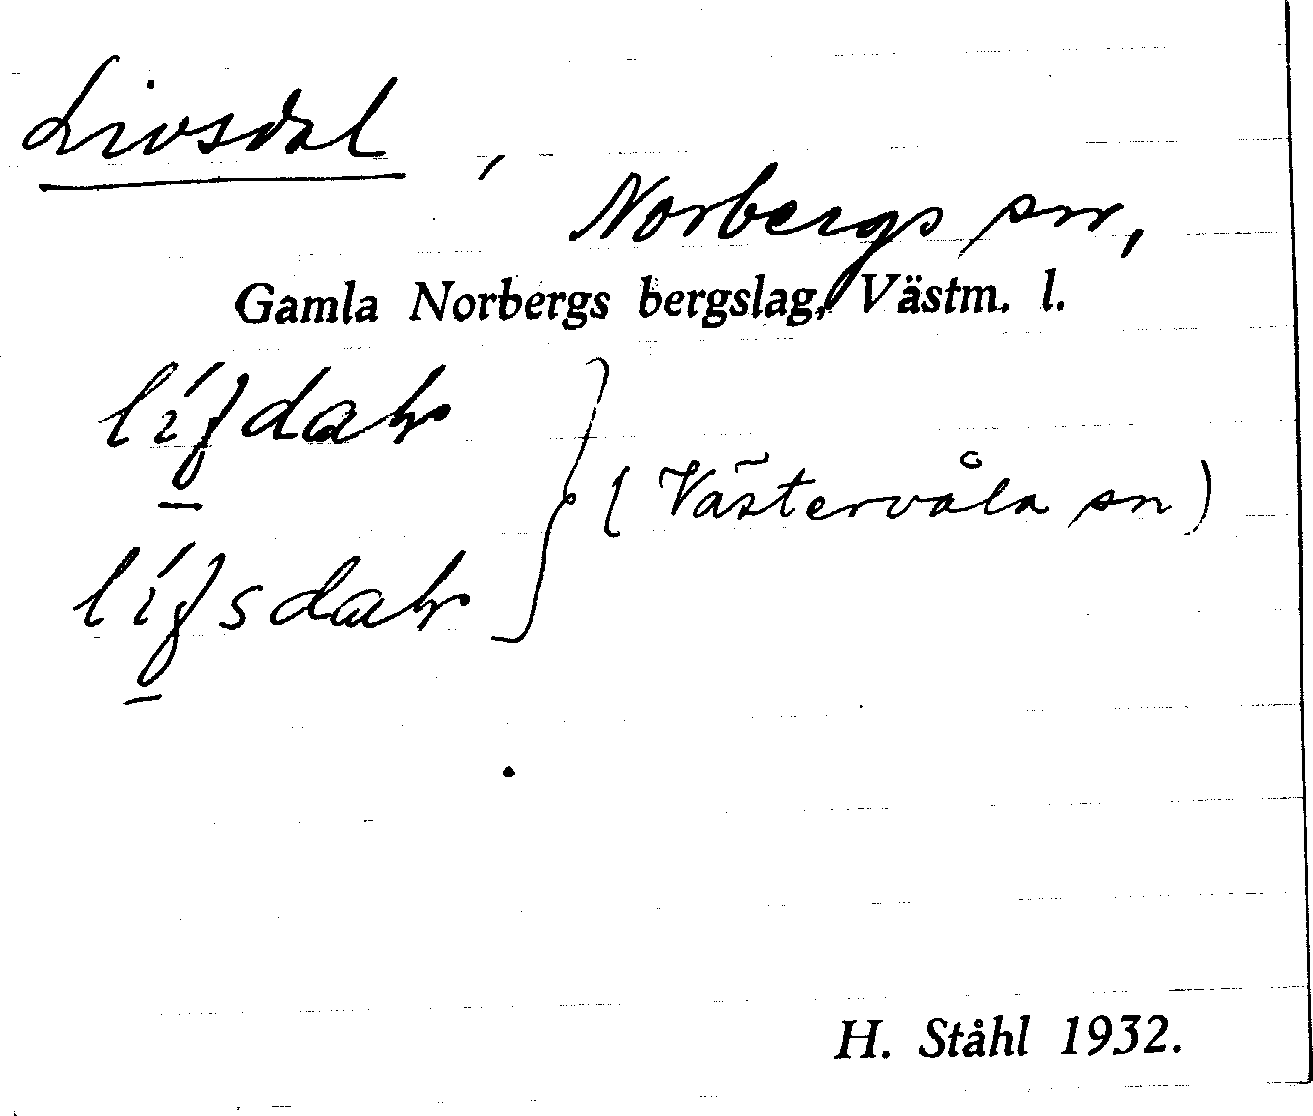 Livsdal,
Norbergs sn,
Gamla Norbergs bergslag, Västm. l.
lífdat
lífsdat
(Västervåla sn)
H. Ståhl 1932.